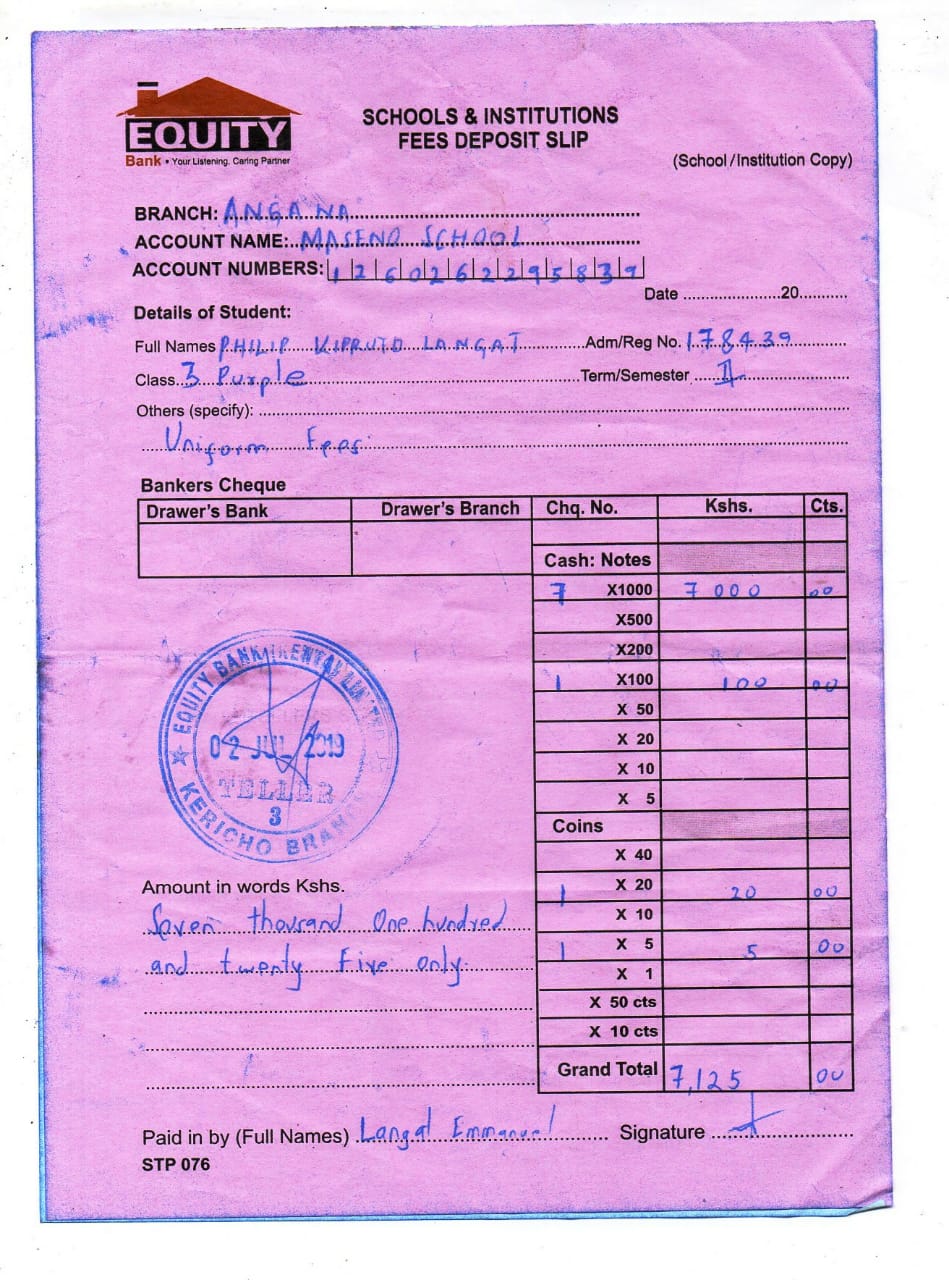 EQUITY
Bank • Your Listening, Caring Partner
SCHOOLS & INSTITUTIONS
FEES DEPOSIT SLIP
(School/Institution Copy)
BRANCH: ANGA NA
ACCOUNT NAME: MASENO SCHOOL
ACCOUNT NUMBERS: 1260262295839
Date ........................20............
Details of Student:
Full Names PHILIP KIPRUTO LANGAT Adm/Reg No. 178439
Class 3 Purple Term/Semester II
Others (specify):
Uniform Fees
Bankers Cheque
Drawer's Bank Drawer's Branch Chq. No. Kshs. Cts.
Cash: Notes
7 X1000 7 000 00
X500
X200
1 X100 100 00
X 50
X 20
X 10
X 5
Coins
X 40
1 X 20 20 00
X 10
1 X 5 5 00
X 1
X 50 cts
X 10 cts
Grand Total 7,125 00
EQUITY BANK (KENYA)
02 JUL 2019
TELLER
3
KERICHO BRANCH
Amount in words Kshs.
Seven thousand One hundred
and twenty Five only.
Paid in by (Full Names) Langat Emmanuel Signature
STP 076